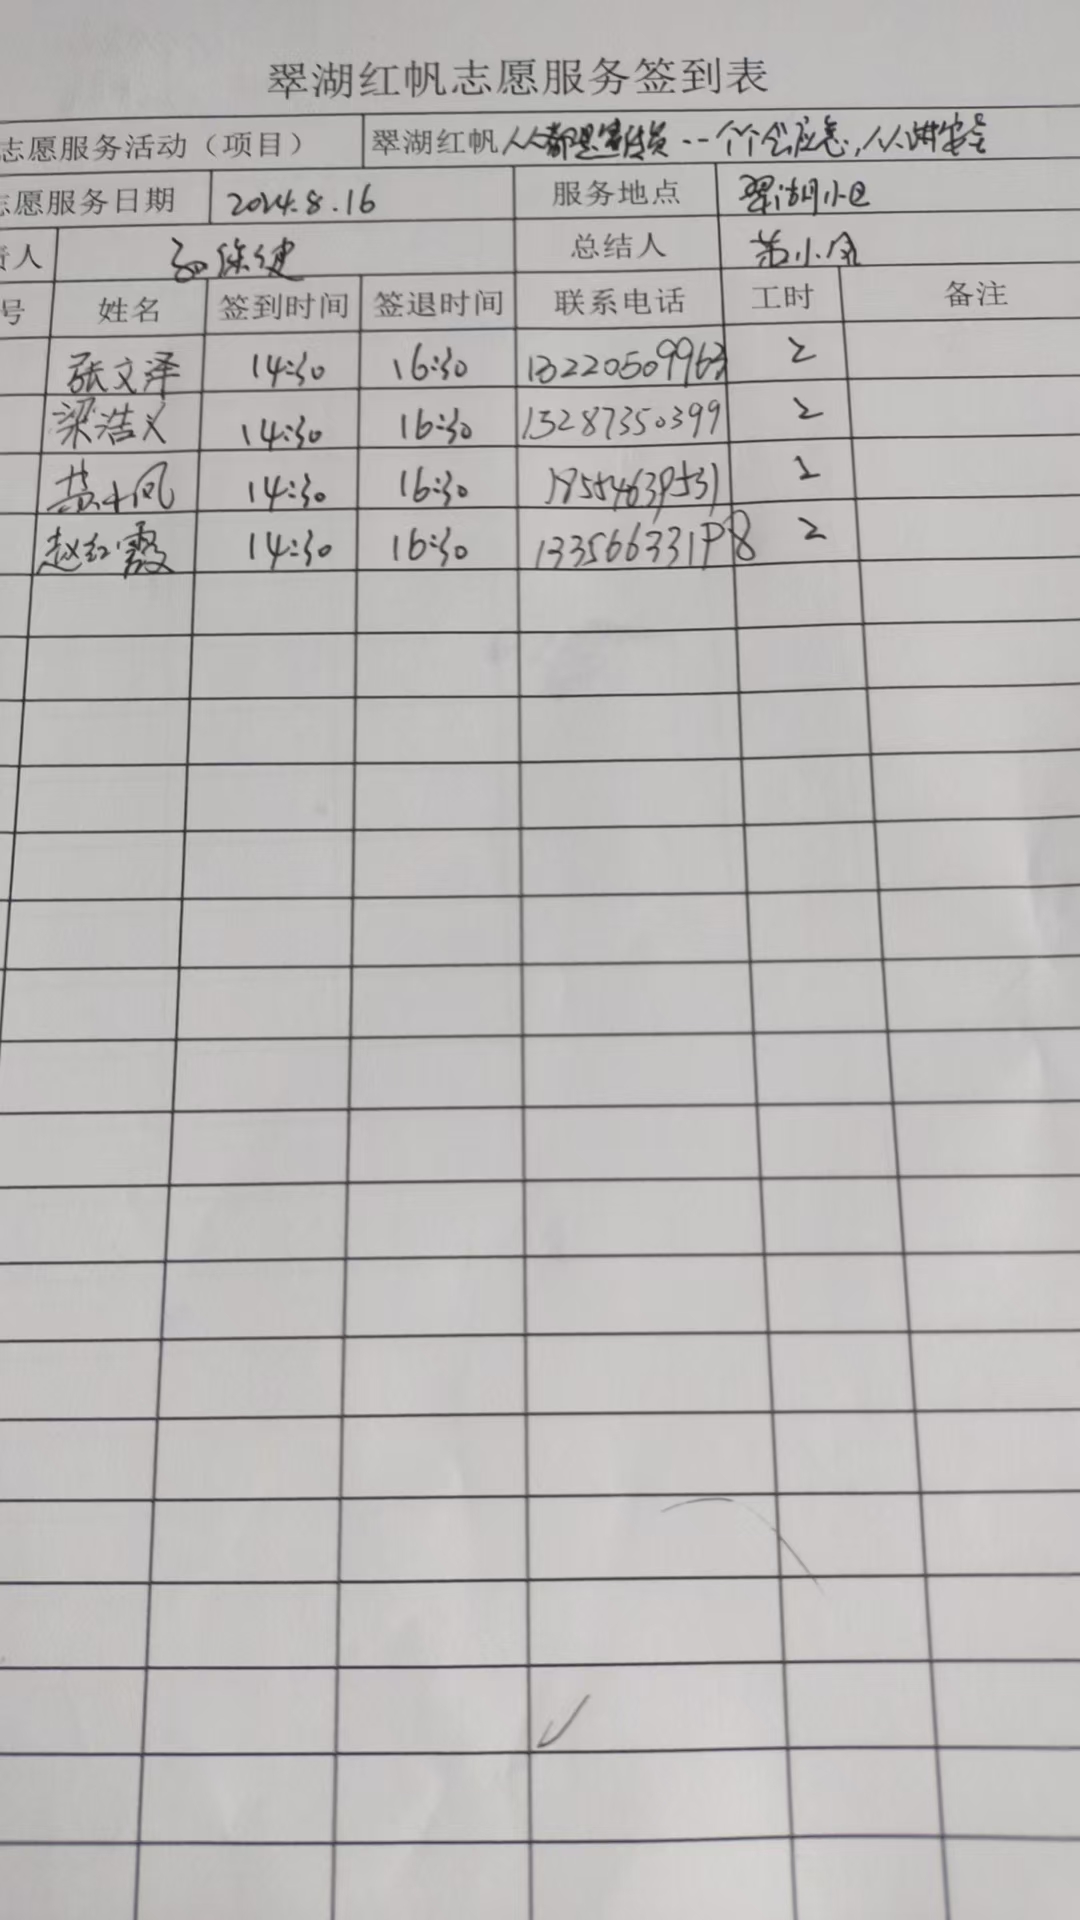 翠湖红帆志愿服务签到表
志愿服务活动（项目） 翠湖红帆人人都是宣传员--个个会应急,人人讲安全
志愿服务日期 2024.8.16 服务地点 翠湖小区
责人 总结人 黄小凤
号 姓名 签到时间 签退时间 联系电话 工时 备注
张文泽 14:30 16:30 13220509963 2
梁浩义 14:30 16:30 15287350399 2
黄小凤 14:30 16:30 18554639531
赵红霞 14:30 16:30 13356633198 2